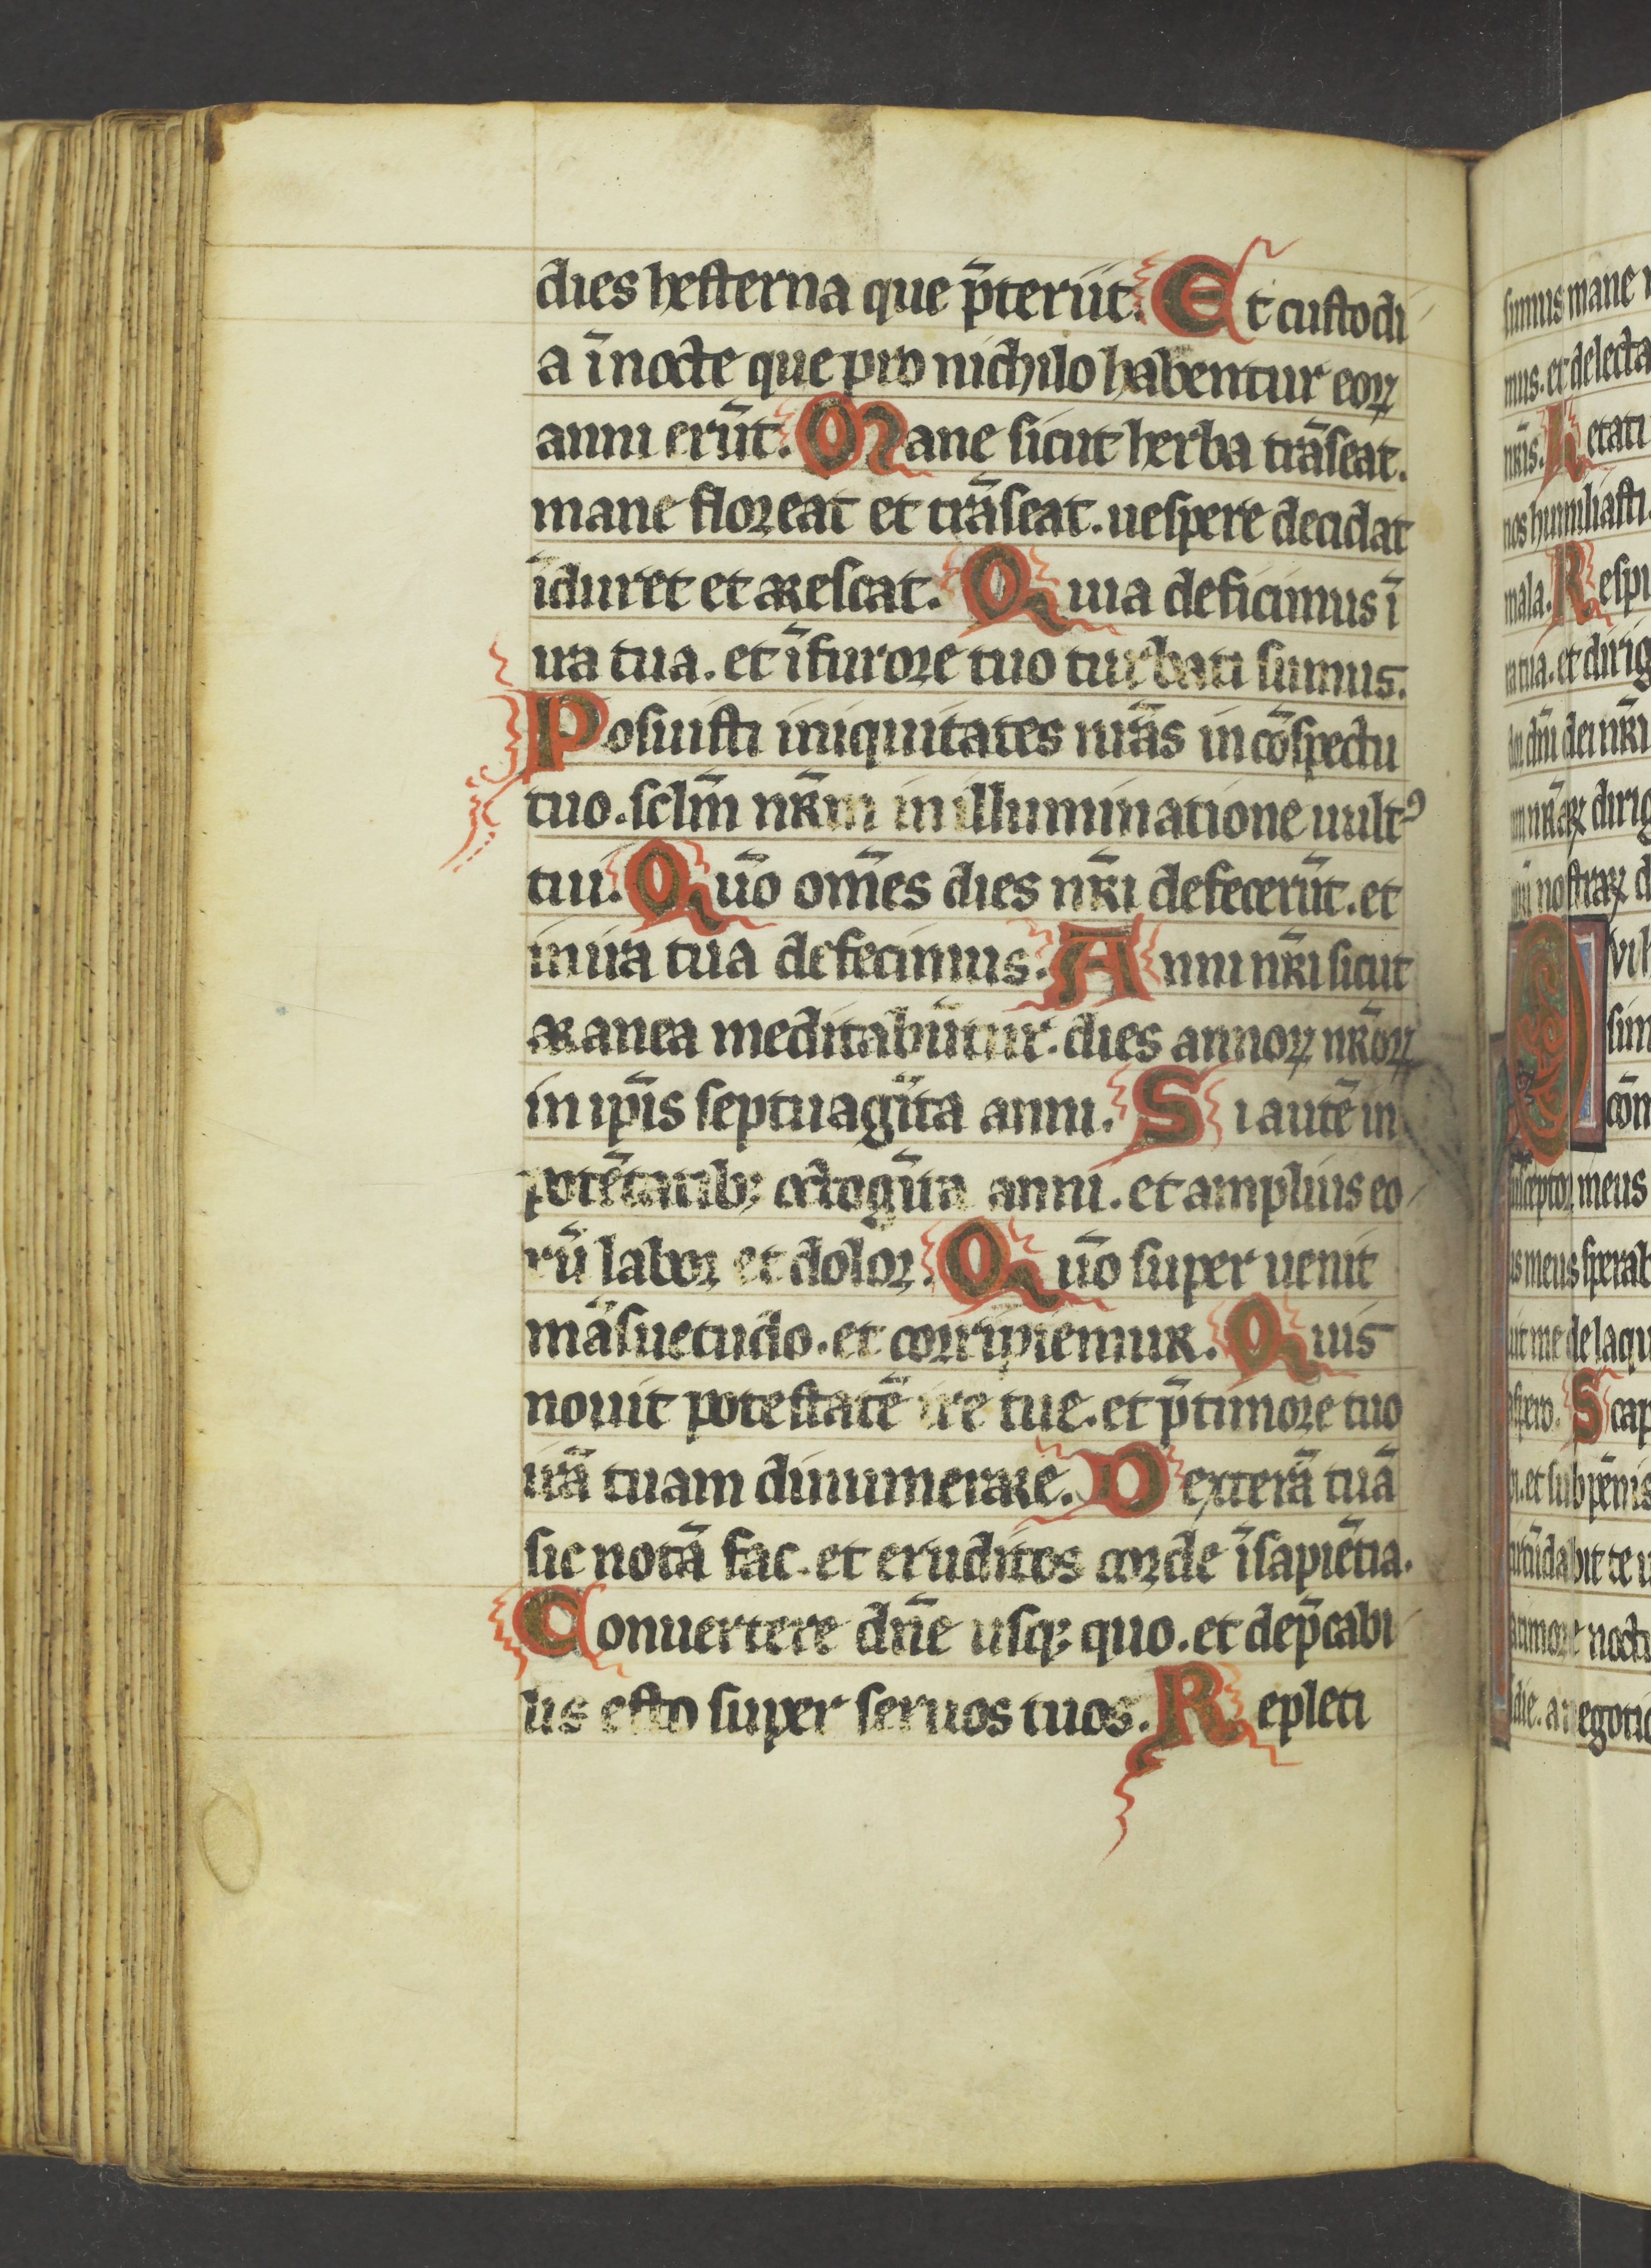 dies hesterna que p̄teriit. Et custodi
a ī nocte que pro nichilo habentur eoꝝ
anni erūt. Mane sicut herba trāseat.
mane floreat et trāseat. uespere decidat
īduret et arescat. Quia deficimus ī
ira tua. et ī furore tuo turbati sumus.
Posuisti iniquitates nr̄as in cōspectu
tuo. sclm̄ nr̄m in illuminatione uultꝰ
tui. Quō om̄es dies nr̄i defecerūt. et
in ira tua defecimus. Anni nr̄i sicut
aranea meditabūtur. dies annoꝝ nr̄oꝝ
in ip̄is septuagīta anni. Si autē in
potētatibꝫ octogīta anni. et amplius eo
rū labor et dolor. Quō super uenit
māsuetudo. et corripiemur. Quis
nouit potestatē ire tue. et p̄ timore tuo
irā tuam dinumerare. Dexterā tuā
sic notā fac. et eruditos corde ī sapiētia.
Conuertere dn̄e usqꝫ quo. et dep̄cabi
lis esto super seruos tuos. Repleti
sumus mane
mus. et delecta
nr̄is. Letati
nos humiliasti.
mala. Respi
ra tua. et dirig
dn̄i dei nr̄i
nr̄aꝝ dirig
nostraꝝ d
sim
cōm
susceptor meus
us meus sperab
de laqu
aspero. Scap
et sub pēnis
cūdabit te u
a timore noctu
die. a negotio